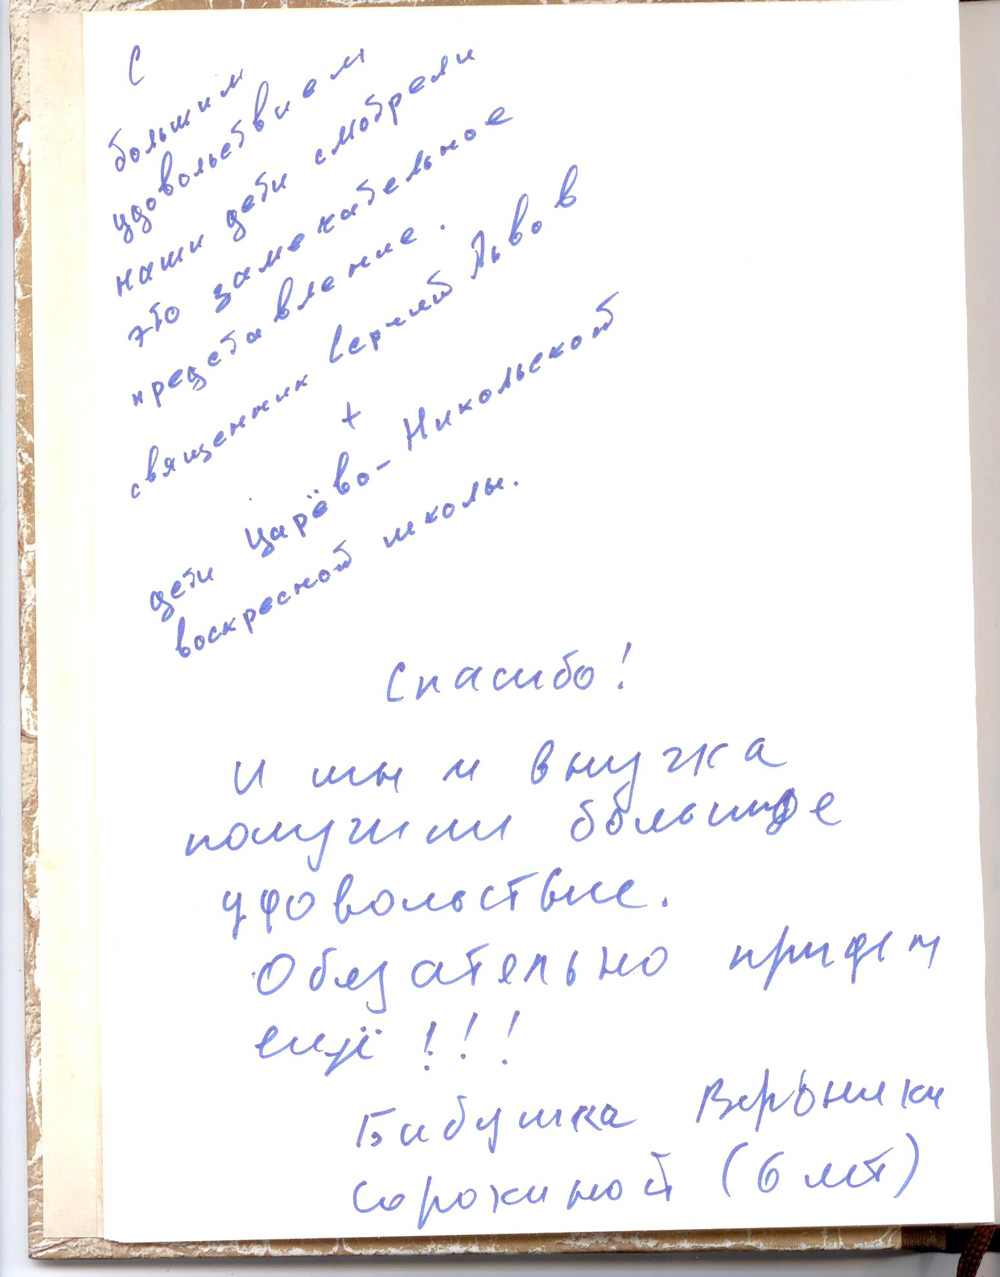 С
большим
удовольствием
наши дети смотрели
это замечательное
представление.
священник Сергий Львов
+
дети Царёво-Никольской
воскресной школы.
Спасибо!
И мы и внучка
получили большое
удовольствие.
Обязательно придем
ещё!!!
Бабушка Вероники
Сорокиной (6 лет)